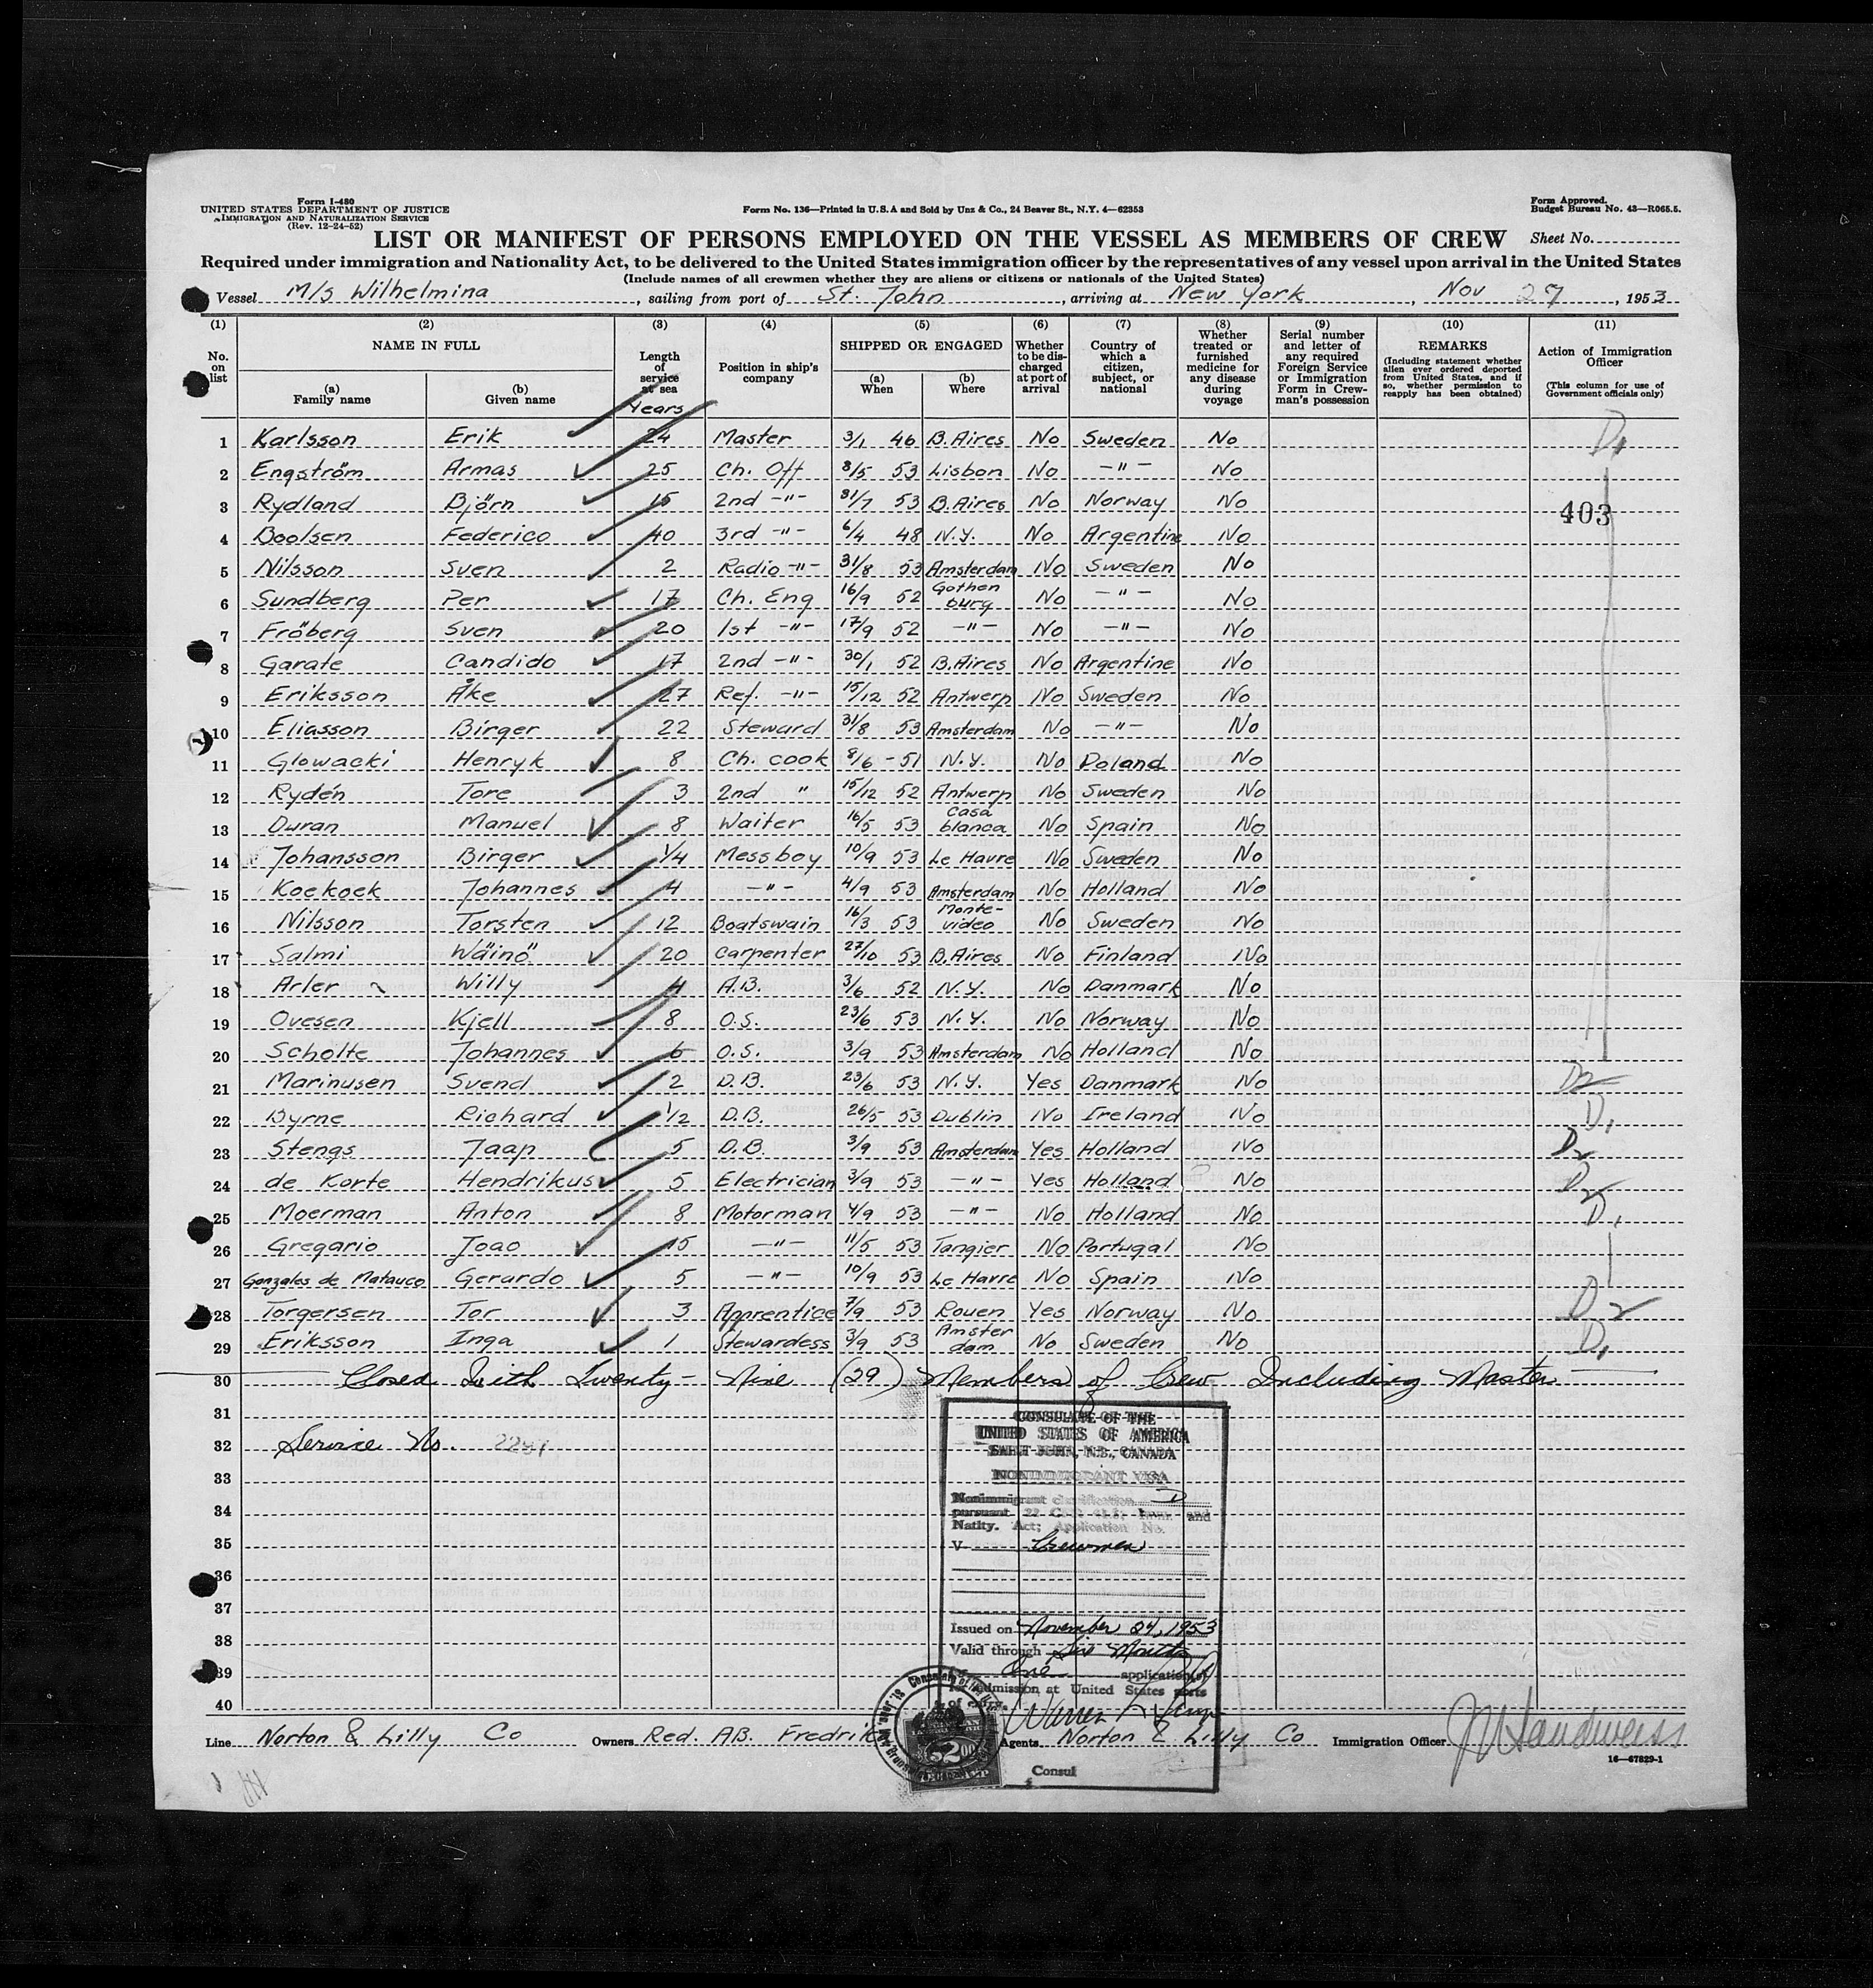 Form I-480
UNITED STATES DEPARTMENT OF JUSTICE
IMMIGRATION AND NATURALIZATION SERVICE
(Rev. 12-24-52)
Form No. 136—Printed in U.S.A and Sold by Unz & Co., 24 Beaver St., N.Y. 4—62353
Form Approved.
Budget Bureau No. 43—R065.5.
LIST OR MANIFEST OF PERSONS EMPLOYED ON THE VESSEL AS MEMBERS OF CREW
Sheet No.
Required under immigration and Nationality Act, to be delivered to the United States immigration officer by the representatives of any vessel upon arrival in the United States
(Include names of all crewmen whether they are aliens or citizens or nationals of the United States)
Vessel M/s Wilhelmina, sailing from port of St. John, arriving at New York, Nov 27, 1953
(1) (2) (3) (4) (5) (6) (7) (8) (9) (10) (11)
No. on list
NAME IN FULL
(a) Family name
(b) Given name
Length of service at sea
Years
Position in ship's company
SHIPPED OR ENGAGED
(a) When
(b) Where
Whether to be discharged at port of arrival
Country of which a citizen, subject, or national
Whether treated or furnished medicine for any disease during voyage
Serial number and letter of any required Foreign Service or Immigration Form in Crewman's possession
REMARKS
(Including statement whether alien ever ordered deported from United States, and if so, whether permission to reapply has been obtained)
Action of Immigration Officer
(This column for use of Government officials only)
1 Karlsson Erik 24 Master 3/1 46 B.Aires No Sweden No D1
2 Engström Armas 25 Ch. Off 8/5 53 Lisbon No —"— No
3 Rydland Björn 15 2nd —"— 31/7 53 B.Aires No Norway No
403
4 Boolsen Federico 40 3rd —"— 6/4 48 N.Y. No Argentine No
5 Nilsson Sven 2 Radio —"— 31/8 53 Amsterdam No Sweden No
6 Sundberg Per 17 Ch. Eng 16/9 52 Gothen burg No —"— No
7 Fröberg Sven 20 1st —"— 17/9 52 —"— No —"— No
8 Garate Candido 17 2nd —"— 30/1 52 B.Aires No Argentine No
9 Eriksson Åke 27 Ref. —"— 15/12 52 Antwerp No Sweden No
10 Eliasson Birger 22 Steward 31/8 53 Amsterdam No —"— No
11 Glowacki Henryk 8 Ch. cook 8/6 -51 N.Y. No Poland No
12 Rydén Tore 3 2nd " 15/12 52 Antwerp No Sweden No
13 Duran Manuel 8 Waiter 16/5 53 Casa blanca No Spain No
14 Johansson Birger 1/4 Messboy 10/9 53 Le Havre No Sweden No
15 Koekoek Johannes 4 —"— 4/9 53 Amsterdam No Holland No
16 Nilsson Torsten 12 Boatswain 16/3 53 Monte-video No Sweden No
17 Salmi Wäinö 20 Carpenter 27/10 53 B.Aires No Finland No
18 Arler Willy 4 A.B. 3/6 52 N.Y. No Danmark No
19 Ovesen Kjell 8 O.S. 23/6 53 N.Y. No Norway No
20 Scholte Johannes 6 O.S. 3/9 53 Amsterdam No Holland No
21 Marinusen Svend 2 D.B. 23/6 53 N.Y. Yes Danmark No D2
22 Byrne Richard 1/2 D.B. 26/5 53 Dublin No Ireland No D1
23 Stengs Jaap 5 D.B. 3/9 53 Amsterdam Yes Holland No D2
24 de Korte Hendrikus 5 Electrician 3/9 53 —"— Yes Holland No D2
25 Moerman Anton 8 Motorman 4/9 53 —"— No Holland No D1
26 Gregario Joao 15 —"— 11/5 53 Tangier No Portugal No
27 Gonzales de Matauco Gerardo 5 —"— 10/9 53 Le Havre No Spain No
28 Torgersen Tor 3 Apprentice 7/9 53 Rouen Yes Norway No D2
29 Eriksson Inga 1 Stewardess 3/9 53 Amster dam No Sweden No D1
30 Closed With Twenty-Nine (29) Members of Crew Including Master
31
32 Service No.
33
34
35
36
37
38
39
40
CONSULATE OF THE
UNITED STATES OF AMERICA
SAINT JOHN, N.B., CANADA
NONIMMIGRANT VISA
Nonimmigrant classification D
pursuant 22 and
Natlty. Act; Application No.
V Crewmen
Issued on November 24, 1953
Valid through Six Months
One application
for admission at United States ports
of entry.
Consul
$2.00
Line Norton & Lilly Co
Owners Red. AB. Fredrik
Agents Norton & Lilly Co
Immigration Officer
16—67829-1